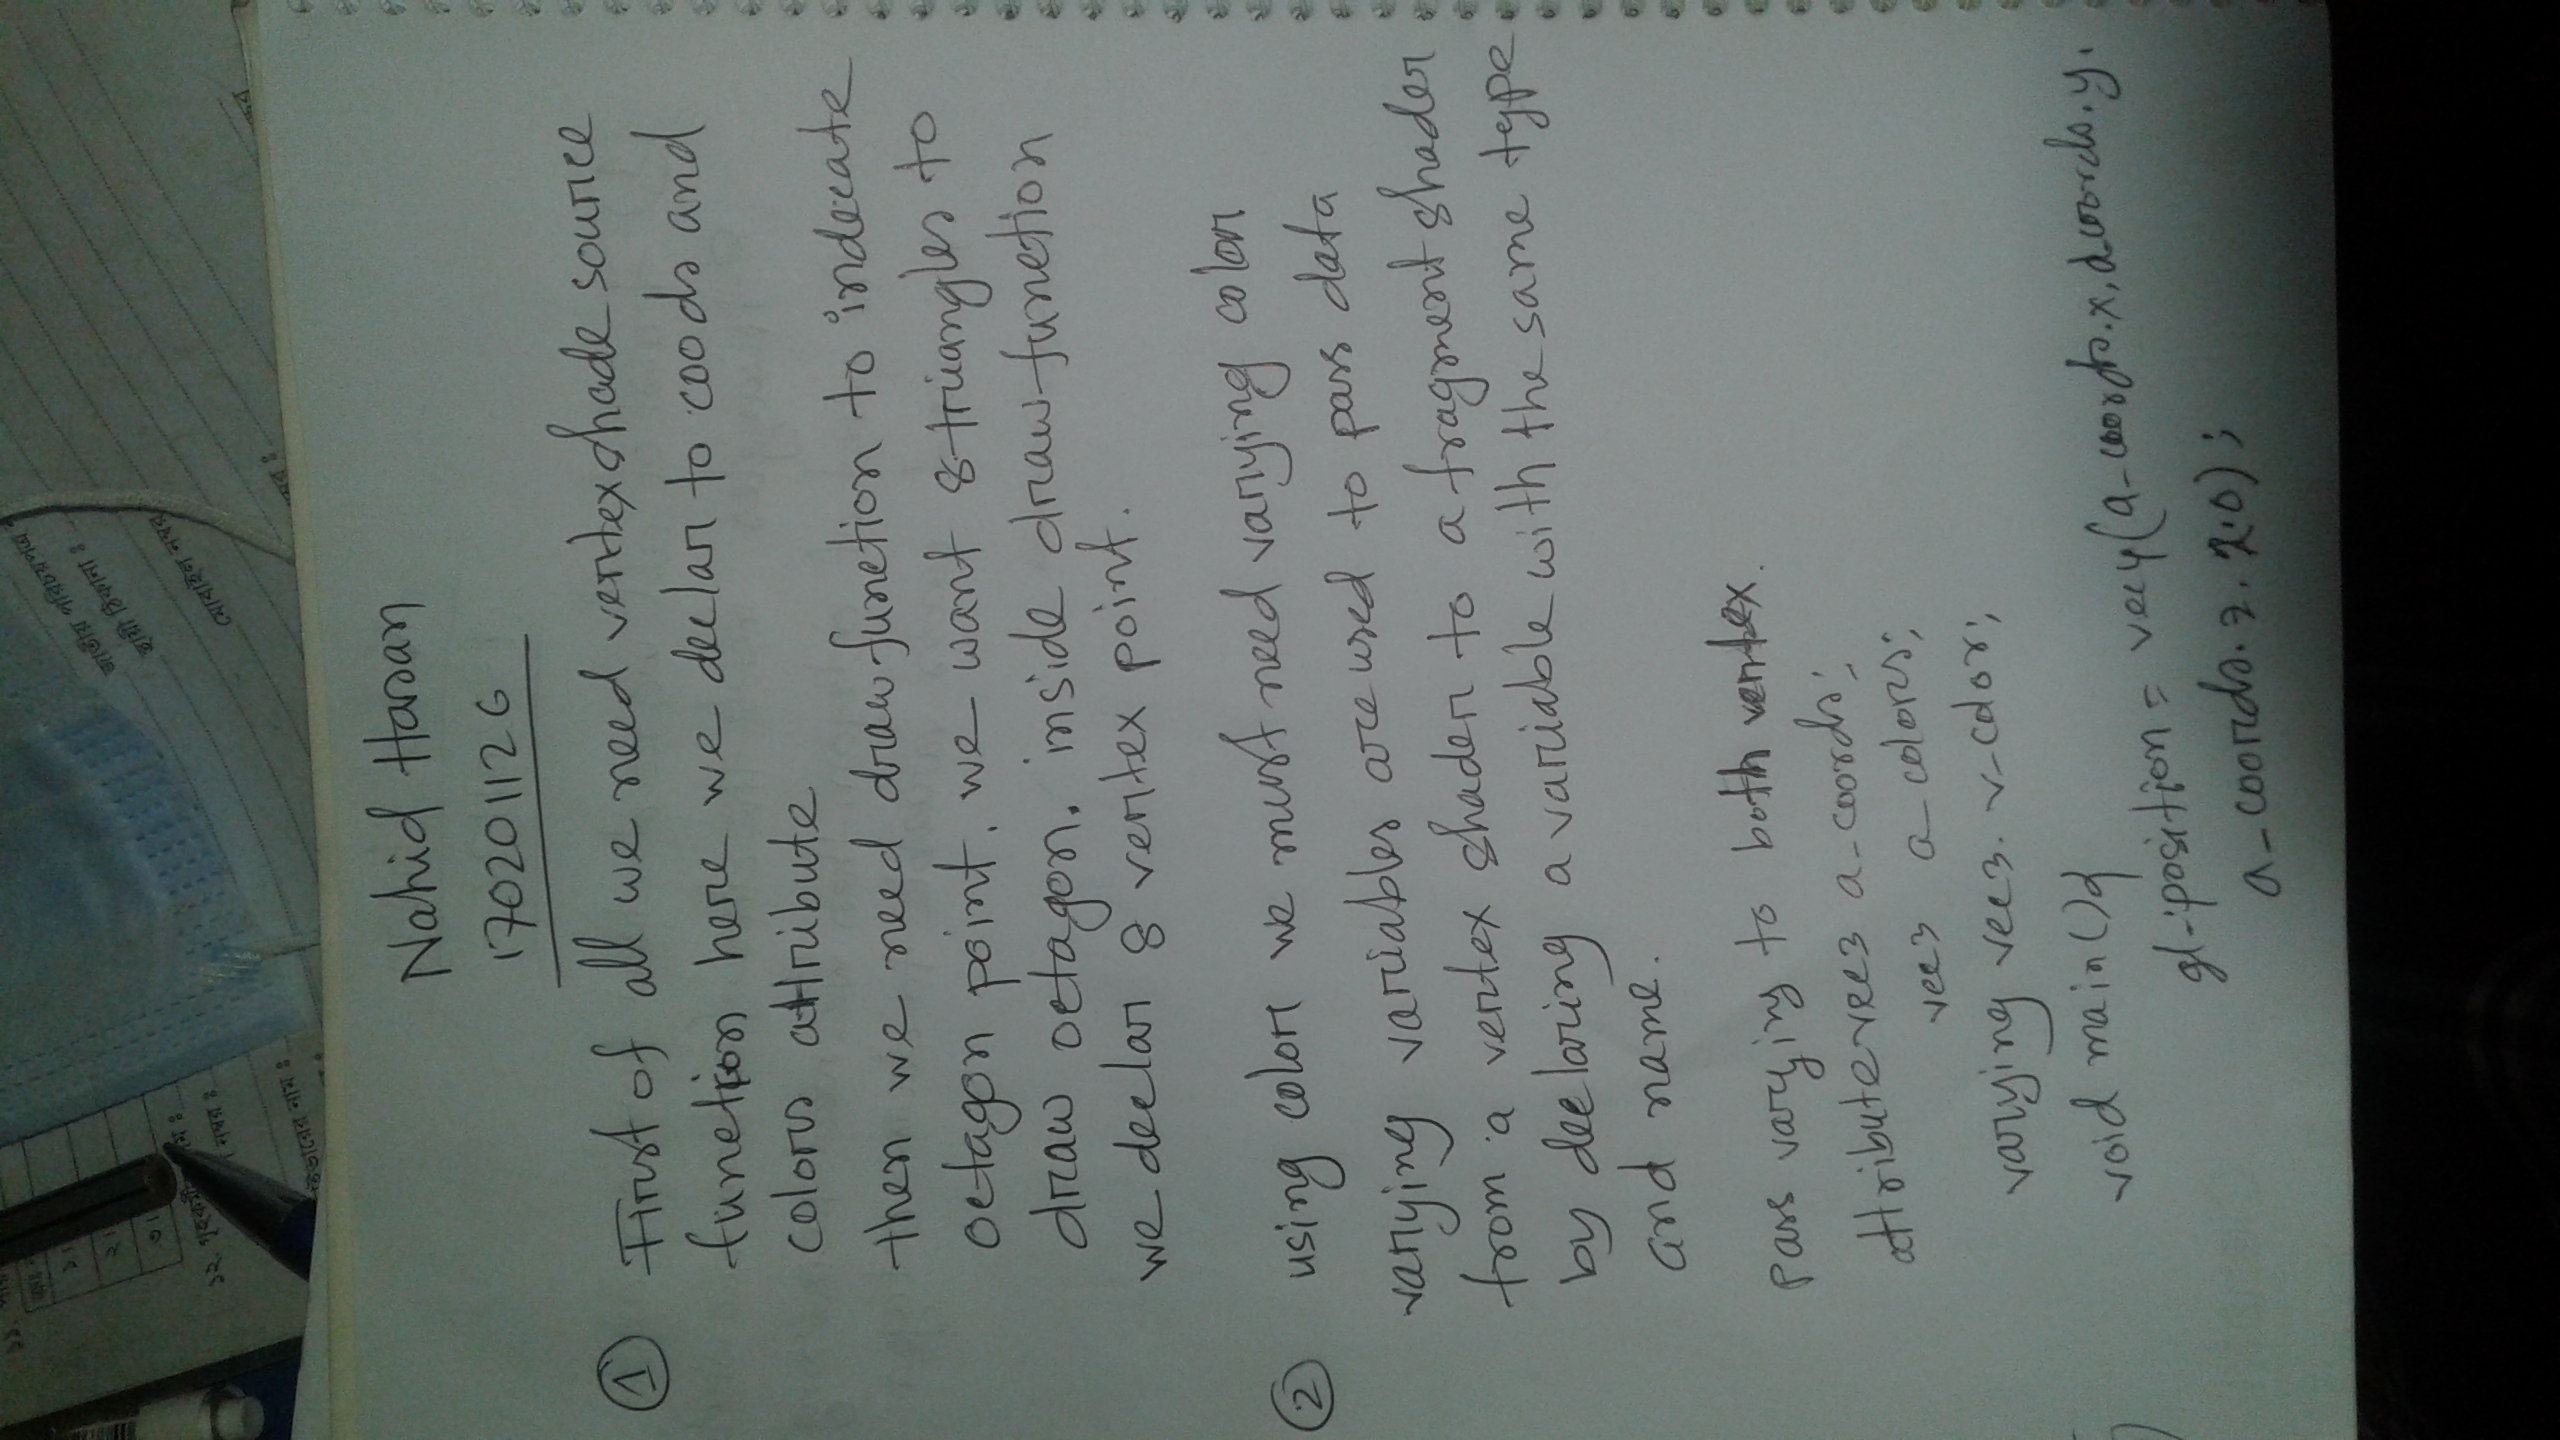 ১১.
২।
৩।
১২. গৃহকর্মীর নাম ঃ
নম্বর ঃ
নাম ঃ
জাতীয় পরিচয়পত্র
স্থায়ী ঠিকানা ঃ
মোবাইল নম্বর
Nahid Hasan
170201126
① First of all we need vertexshade source
function here we declar to coods and
colors attribute
then we need draw function to indecate
octagon point. we want 8 triangles to
draw octagon. inside draw function
we declar 8 vertex point.
② using color we must need varying color
varying variables are used to pass data
from a vertex shader to a fragment shader
by declaring a variable with the same type
and name.
pass varying to both vertex.
attribute vec3 a_coords;
vec3 a_colors;
varying vec3. v_color;
void main(){
gl-position = vec4(a_coords.x, a_coords.y.
a_coords.z. 1.0);